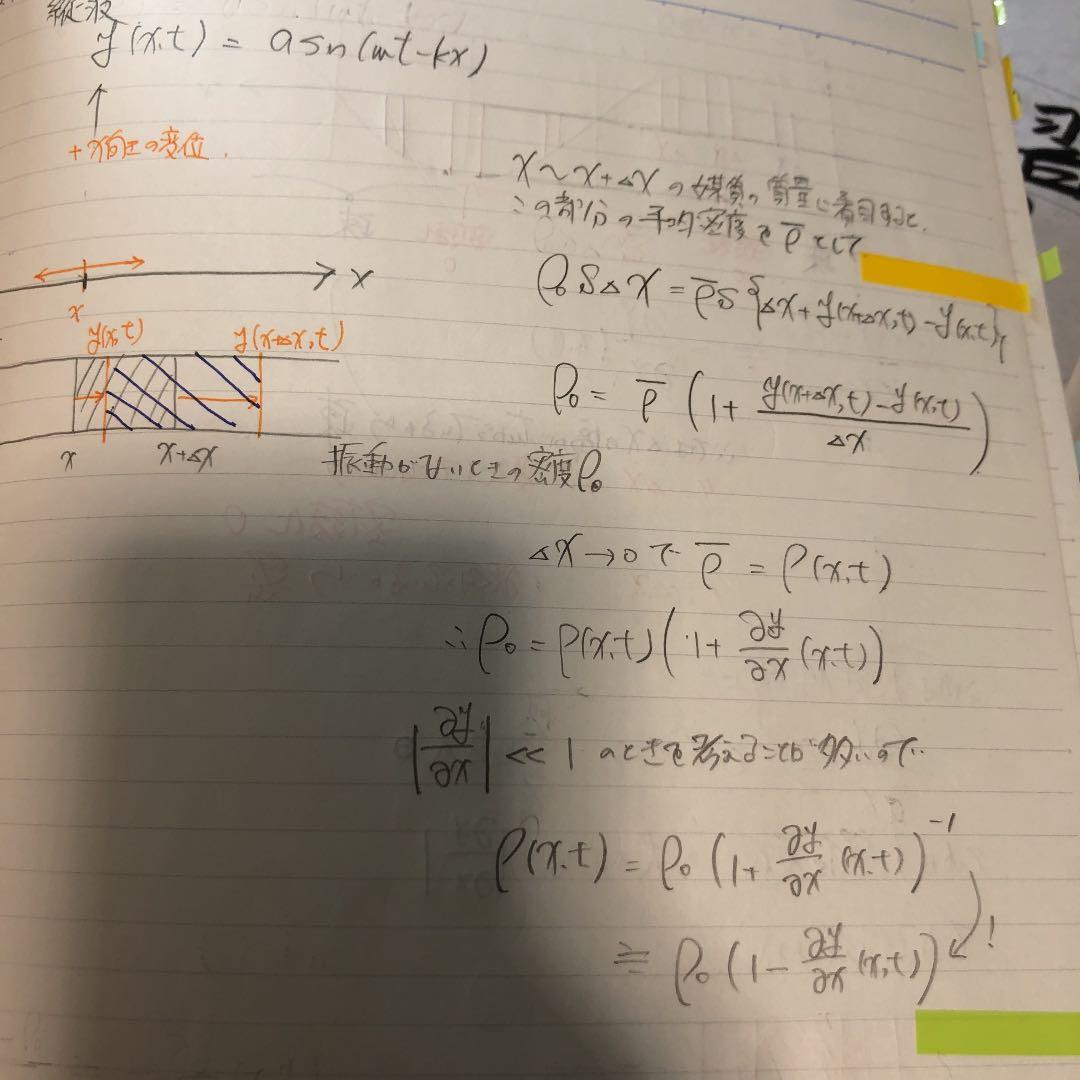 縦波
y(x,t) = a sin(ωt-kx)
↑
+x向きの変位.
x~x+Δxの媒質の質量に着目すると,
この部分の平均密度をρ̅として
x
x
ρ₀SΔx = ρ̅S{Δx+y(x+Δx,t)-y(x,t)}
y(x,t) y(x+Δx,t)
ρ₀ = ρ̅ (1+ (y(x+Δx,t)-y(x,t))/Δx)
x x+Δx
振動がないときの密度ρ₀
Δx→0で ρ̅ = ρ(x,t)
∴ρ₀ = ρ(x,t)(1+ ∂y/∂x (x,t))
|∂y/∂x| << 1 のときを考えることが多いので
ρ(x,t) = ρ₀ (1+ ∂y/∂x (x,t))⁻¹
≒ ρ₀ (1- ∂y/∂x (x,t)) !
習